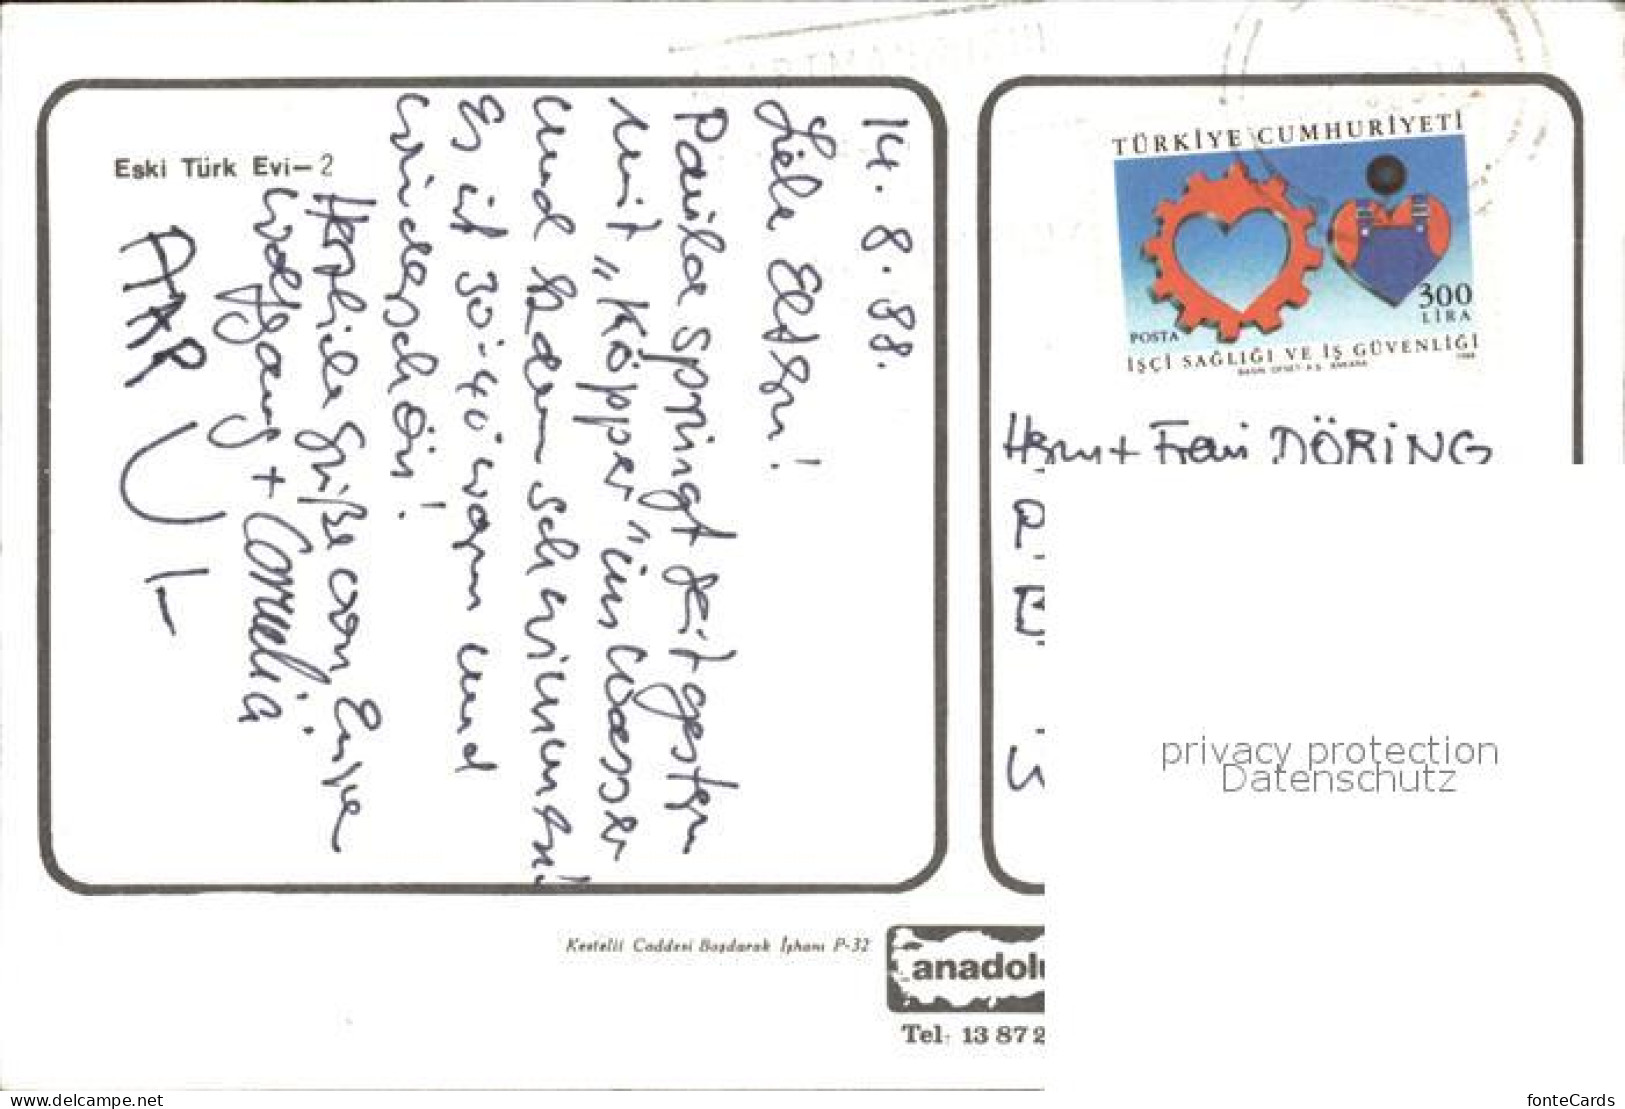 14.8.88.
Liebe Eltern!
Paula springt seit gestern
mit „Köpper" ins Wasser
und kann schwimmen!
Es ist 30°-40° warm und
wunderschön!
Herzliche Grüße von Eurer
Wolfgang + Cornelia
Eski Türk Evi-2
TÜRKİYE CUMHURİYETİ
300
LİRA
POSTA
İŞÇİ SAĞLIĞI VE İŞ GÜVENLİĞİ
Herrn + Frau DÖRING
privacy protection
Datenschutz
Kestelli Caddesi Başdarak İşhanı P-32
anadolu
Tel: 13 87 2
www.delcampe.net
fonteCards